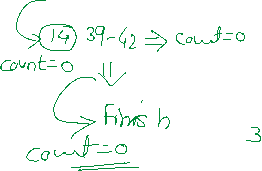 14 39-42 ⇒ count=0
count=0
Finish
count=0
3